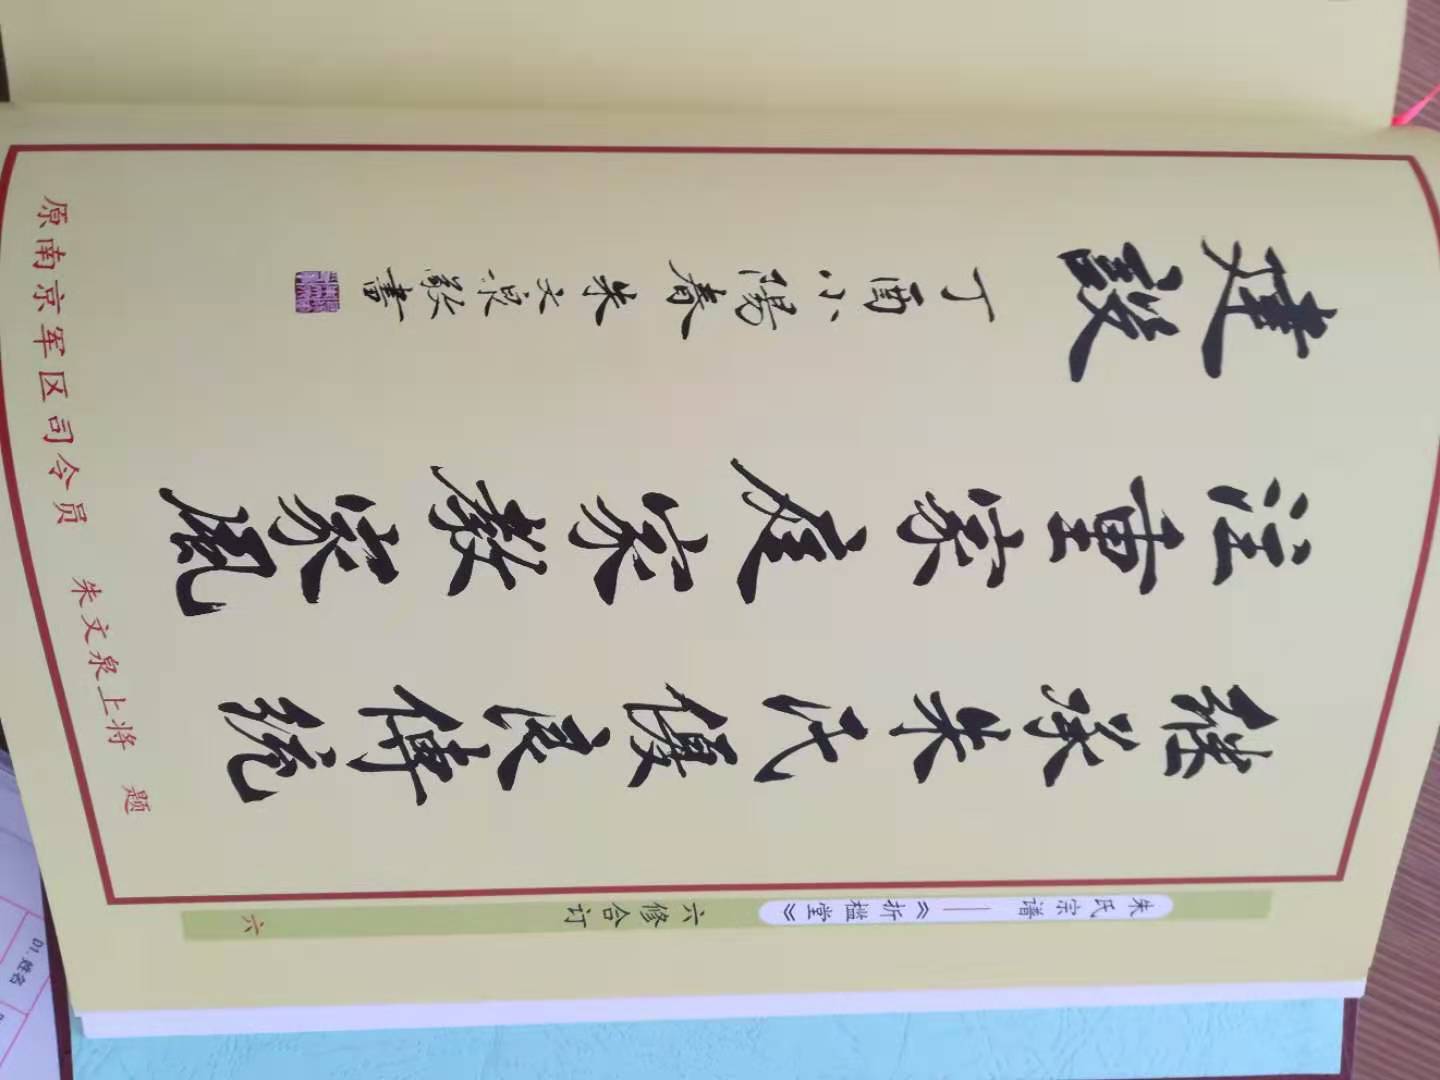 继承朱氏优良传统
注重家庭家教家風
建設
丁酉小陽春 朱文泉敬書
原南京军区司令员 朱文泉上将 题
朱氏宗谱——《折槛堂》
六修合订
六
01.姓名